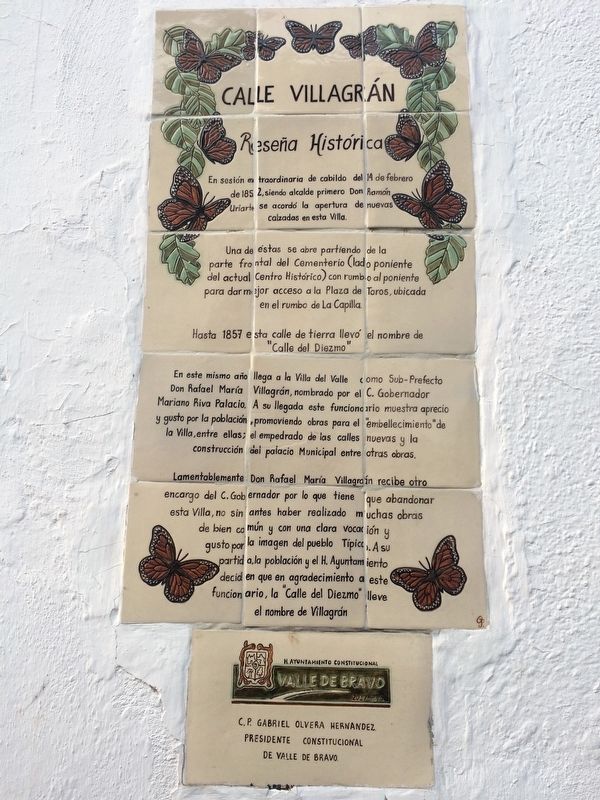 CALLE VILLAGRÁN
Reseña Histórica
En sesión extraordinaria de cabildo del 14 de febrero
de 1852, siendo alcalde primero Don Ramón
Uriarte se acordó la apertura de nuevas
calzadas en esta Villa.
Una de éstas se abre partiendo de la
parte frontal del Cementerio (lado poniente
del actual Centro Histórico) con rumbo al poniente
para dar mejor acceso a la Plaza de Toros, ubicada
en el rumbo de La Capilla.
Hasta 1857 esta calle de tierra llevó el nombre de
"Calle del Diezmo"
En este mismo año llega a la Villa del Valle como Sub-Prefecto
Don Rafael María Villagrán, nombrado por el C. Gobernador
Mariano Riva Palacio. A su llegada este funcionario muestra aprecio
y gusto por la población, promoviendo obras para el "embellecimiento" de
la Villa, entre ellas; el empedrado de las calles nuevas y la
construcción del palacio Municipal entre otras obras.
Lamentablemente Don Rafael María Villagrán recibe otro
encargo del C. Gobernador por lo que tiene que abandonar
esta Villa, no sin antes haber realizado muchas obras
de bien común y con una clara vocación y
gusto por la imagen del pueblo Típico. A su
partida, la población y el H. Ayuntamiento
deciden que en agradecimiento a este
funcionario, la "Calle del Diezmo" lleve
el nombre de Villagrán
H. AYUNTAMIENTO CONSTITUCIONAL
VALLE DE BRAVO
C.P. GABRIEL OLVERA HERNANDEZ
PRESIDENTE CONSTITUCIONAL
DE VALLE DE BRAVO.